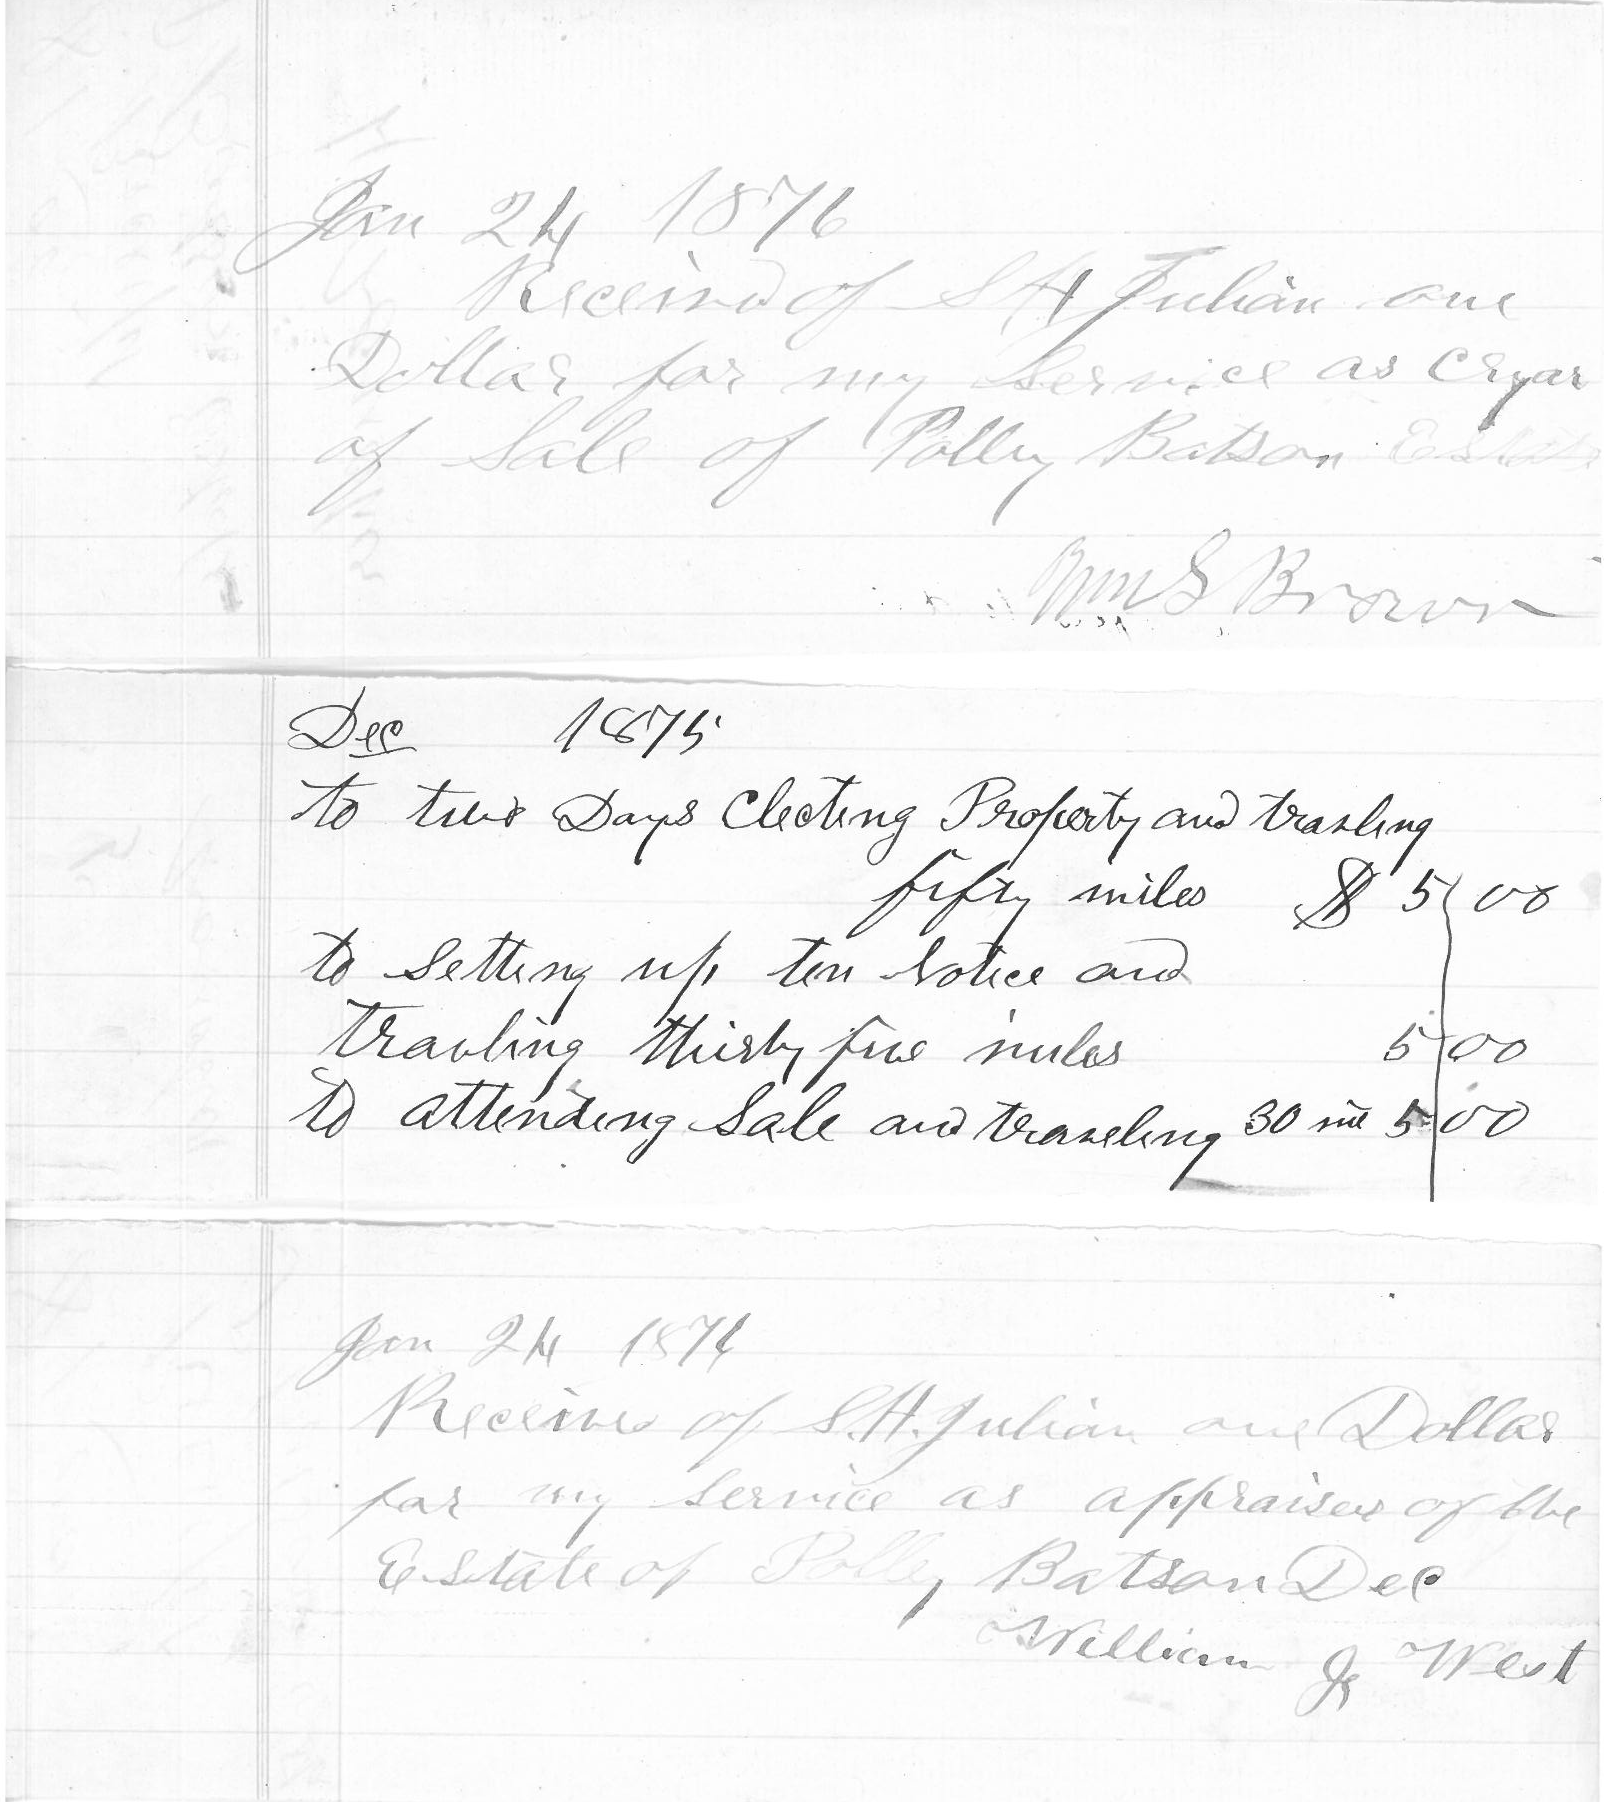 Jan 24 1876
Receivd of S H Julian one
Dollar for my Service as Cryar
of Sale of Polly Batson Estate
Wm S Brown
Dec 1875
to two Days Clecting Property and travling
fifty miles $ 5 00
to Setting up ten Notice and
travling thirty five miles 5 00
to attending Sale and traveling 30 mil 5 00
Jan 24 1876
Received of S.H. Julian one Dollar
for my Service as appraiser of the
Estate of Polly Batson Dec
William Jr West